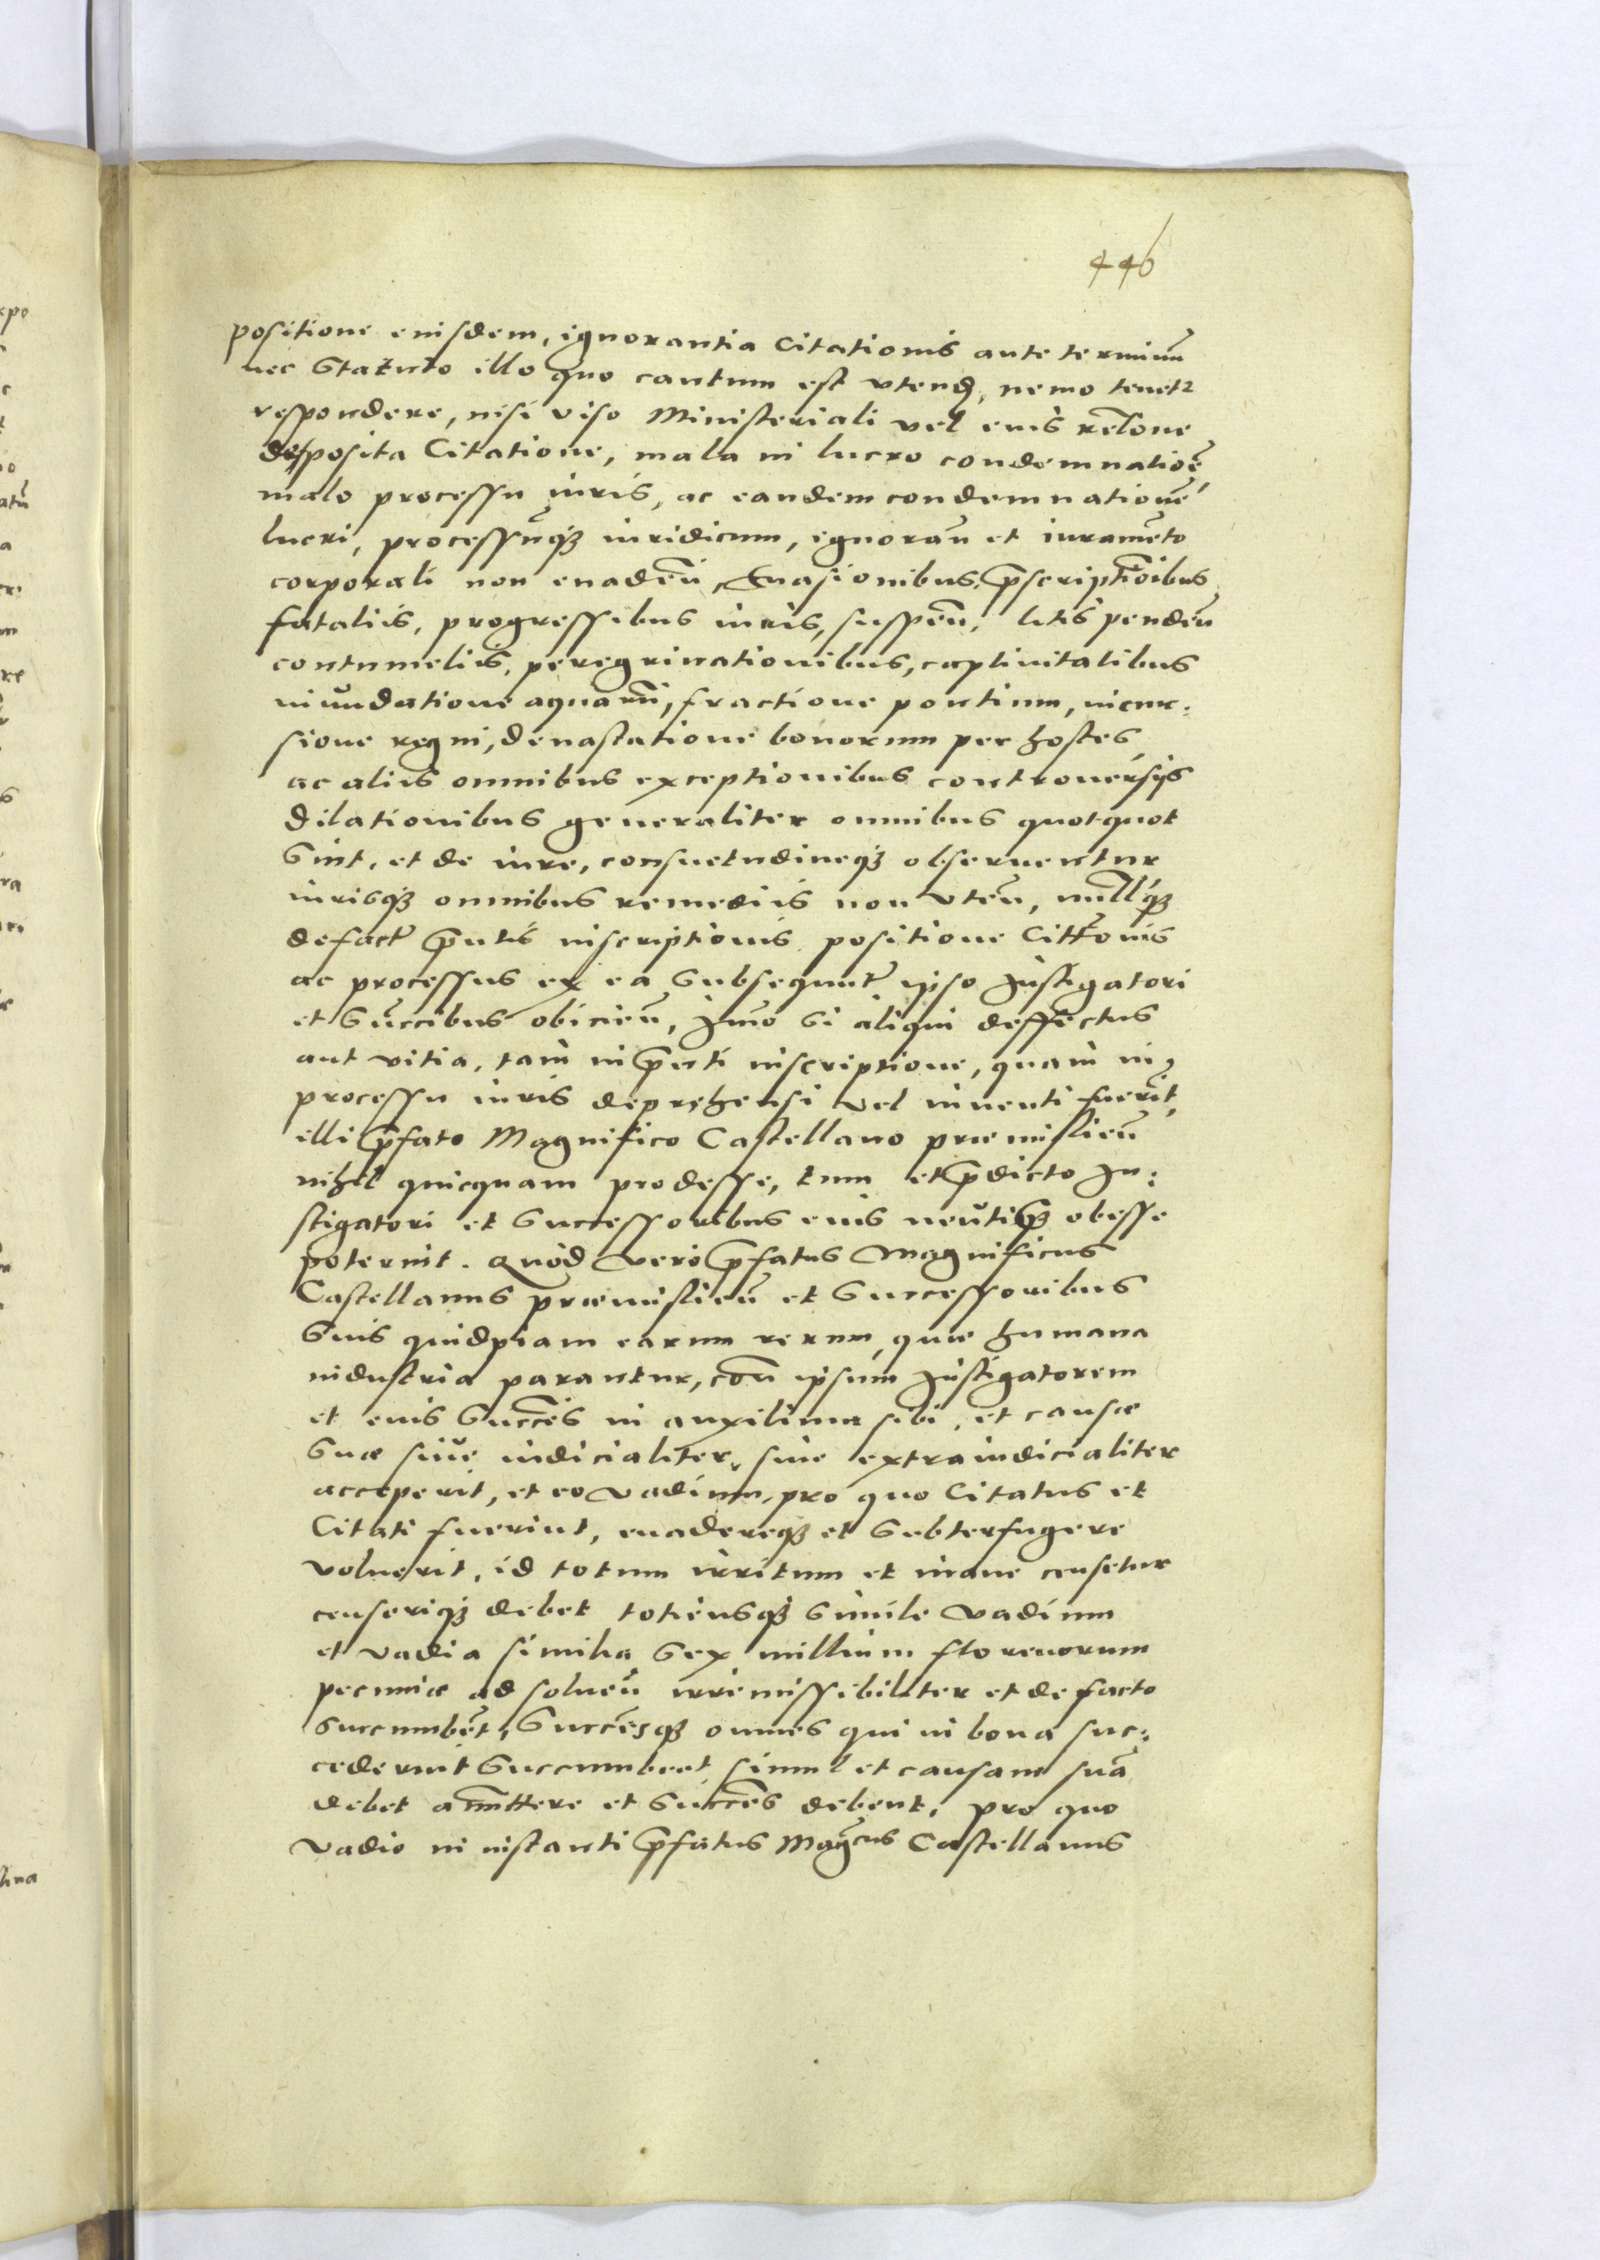 446
positione eiusdem, ignorantia Citationis ante terminũ
nec Statuto illo quo cautum est vtend, nemo tenetr
respondere, nisi viso Ministeriali vel eius relõne
deposita Citatione, mala in lucro condemnatiõe
malo processu iuris, ac eandem condemnationẽ
lucri, processũq3 iuridicum, ignorañ et iuramẽto
corporali non euadeñ, Euasionibus, pscriptiõibus
fataliis, progressibus iuris, suspeñ, litis pendeñ
contumeliis, peregrinationibus, captiuitatibus
inundatione aquarũ, fractione pontium, incur:
sione regni, deuastatione bonorum per hostes
ac aliis omnibus exceptionibus controuersijs
dilationibus generaliter omnibus quotquot
sint, et de iure, consuetudineq3 obseruentur
iurisq3 omnibus remediis non vteñ, nullq3
defact pntis inscriptionis positione Cittõnis
ac processus ex ea subsequent ipso Instigatori
et succibus obicieñ, Imo si aliqui deffectus
aut vitia, tam in pnti inscriptione, quam in
processu iuris deprehensi vel inuenti fuerĩt,
illi pfato Magnifico Castellano præmislieñ
nihil quicquam prodesse, tum et pdicto In:
stigatori et successoribus eius neutiq3 obesse
poterint. Quod vero pfatus Magnificus
Castellanus præmislieñ et successoribus
suis quidpiam earum rerum, quæ humana
industria parantur, coñ ipsum Instigatorem
et eius succẽs in auxilium sibi, et causæ
suæ siue iudicialiter, siue extraiudicialiter
acceperit, et eo vadium, pro quo Citatus et
Citati fuerint, euadereq3 et subterfugere
voluerit, id totum irritum et inane censetur
censeriq3 debet totiensq3 simile vadium
et vadia similia sex millium florenorum
pecuniæ ad solueñ irremissibiliter et de facto
succumbẽt, succẽsq3 omnes qui in bona suc:
cederint succumbent, simul et causam suã
debet amittere et succẽs debent, pro quo
vadio in instanti pfatus Magcus Castellanus